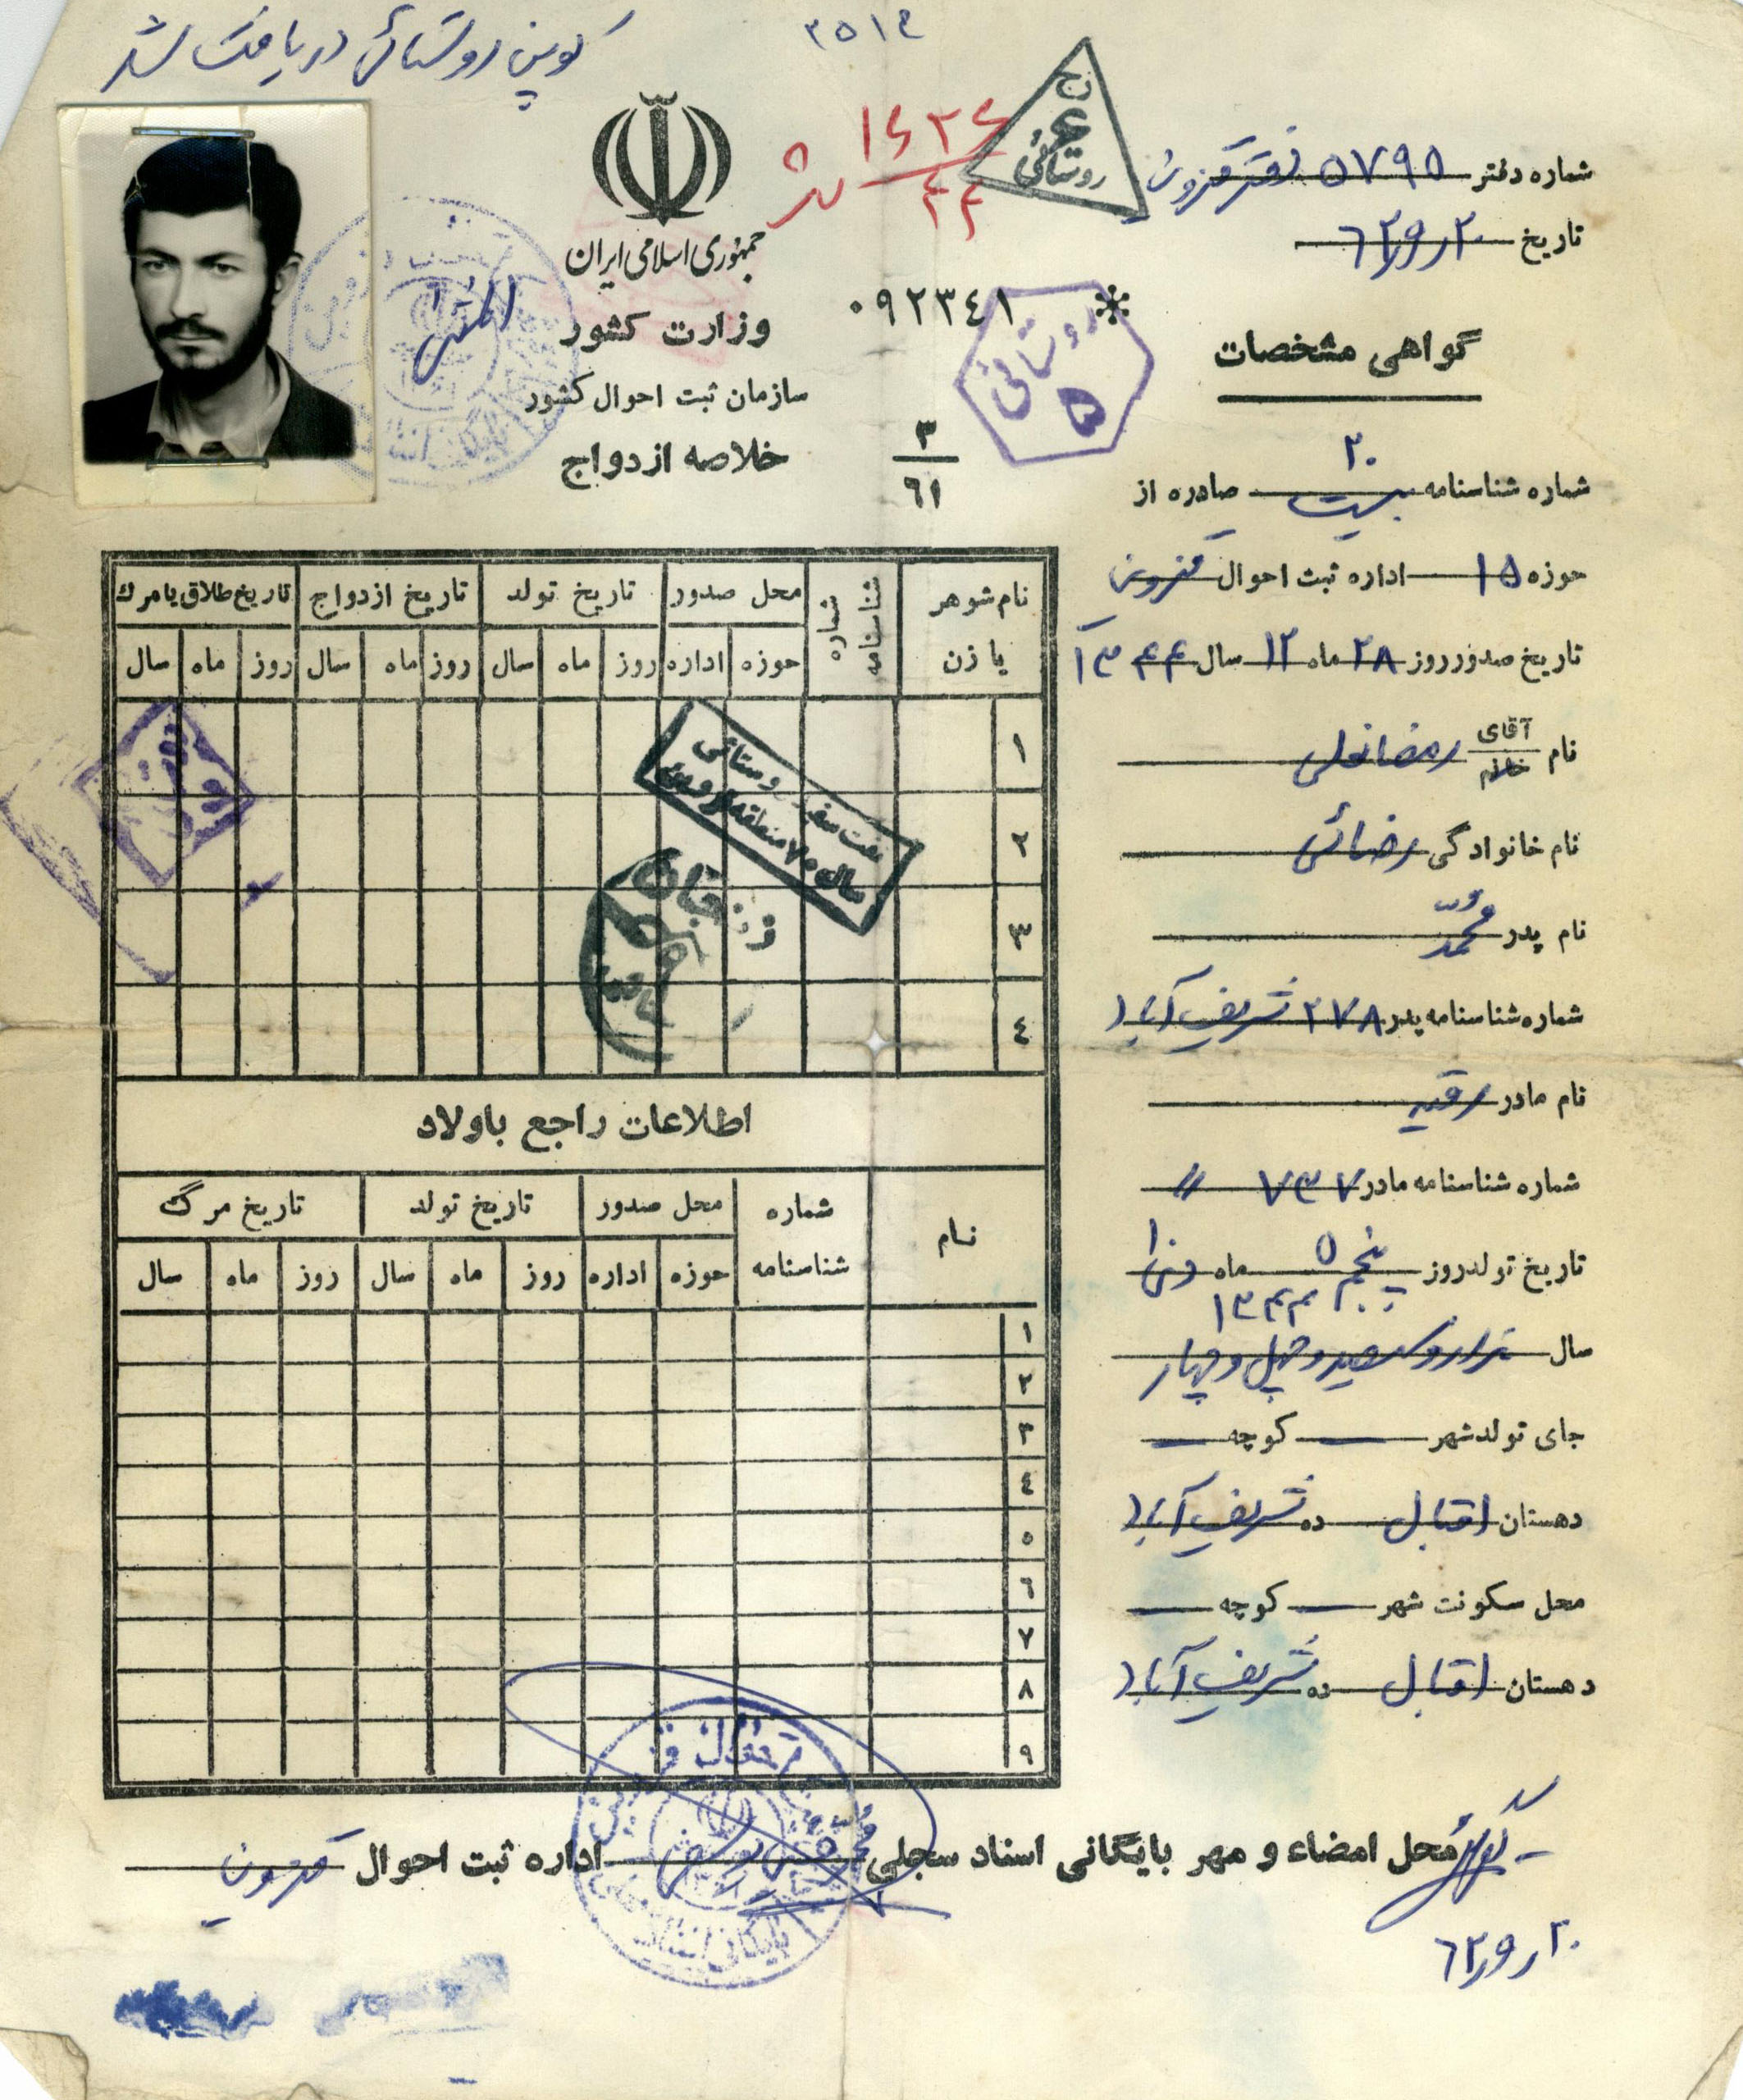 کوپن روستائی دریافت شد
۳۵۱۳
جمهوری اسلامی ایران
وزارت کشور
سازمان ثبت احوال کشور
خلاصه ازدواج
المثنی
۰۹۲۳٤۱ *
۳
٦۱
روستائی
روستائی
۵
شماره دفتر ۵۷۹۵ دفتر قزوین
تاریخ ۲۰ر۹ر٦۲
گواهی مشخصات
شماره شناسنامه ۲۰ بیست صادره از
حوزه ۱۵ اداره ثبت احوال قزوین
تاریخ صدور روز ۲۸ ماه ۱۲ سال ۱۳۴۴
نام آقای خانم رمضانعلی
نام خانوادگی رضائی
نام پدر محمد
شماره شناسنامه پدر ۲۷۸ شریف آباد
نام مادر رقیه
شماره شناسنامه مادر ۷۳۷ //
تاریخ تولد روز پنجم ۵ ماه دی ۱۰
۱۳۴۴
سال هزار و سیصد و چهل و چهار
جای تولد شهر — کوچه —
دهستان اقبال ده شریف آباد
محل سکونت شهر — کوچه —
دهستان اقبال ده شریف آباد
نام شوهر یا زن
شماره شناسنامه
محل صدور
تاریخ تولد
تاریخ ازدواج
تاریخ طلاق یا مرگ
حوزه اداره روز ماه سال روز ماه سال روز ماه سال
۱
۲
۳
٤
نفت سفید روستائی
سال ۷۰ منطقه قزوین
اطلاعات راجع باولاد
نام
شماره شناسنامه
محل صدور
تاریخ تولد
تاریخ مرگ
حوزه اداره روز ماه سال روز ماه سال
۱
۲
۳
٤
۵
٦
۷
۸
۹
محل امضاء و مهر بایگانی اسناد سجلی اداره ثبت احوال قزوین
۲۰ر۹ر٦۲